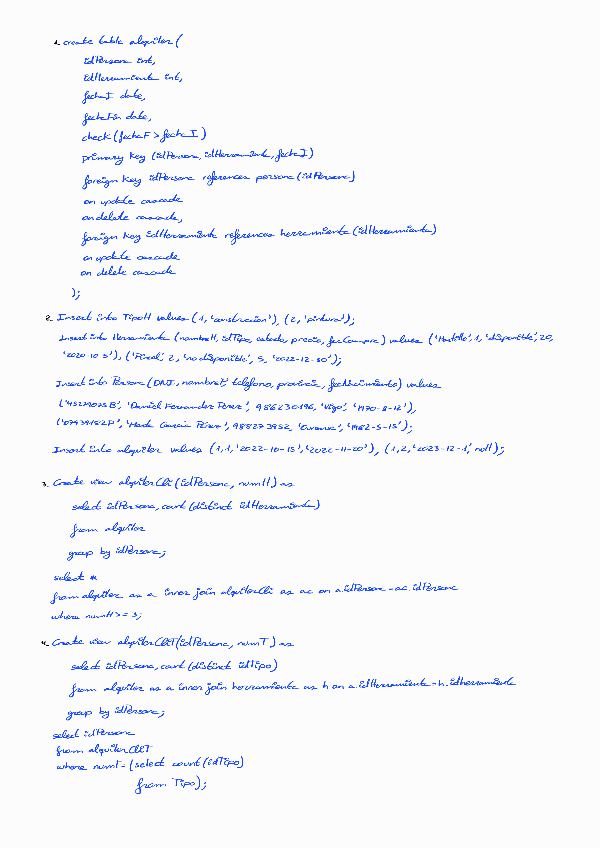 1. create table alquiler (
idPersona int,
idHerramienta int,
fechaI date,
fechaFin date,
check (fechaF > fechaI)
primary key (idPersona, idHerramienta, fechaI)
foreign key idPersona references persona (idPersona)
on update cascade
on delete cascade,
foreign key idHerramienta references herramienta (idHerramienta)
on update cascade
on delete cascade
);
2. Insert into TipoH values (1, 'construccion'), (2, 'pintura');
Insert into Herramienta (nombreH, idTipo, estado, precio, fecCompra) values ('Martillo', 1, 'disponible', 20,
'2020-10-5'), ('Pincel', 2, 'no disponible', 5, '2022-12-30');
Insert into Persona (DNI, nombreP, telefono, provincia, fecNacimiento) values
('45279025B', 'Daniel Fernandez Perez', 986230196, 'Vigo', '1970-8-12'),
('07939152P', 'Mark Garcia Pérez', 988273952, 'Ourense', '1982-5-15');
Insert into alquiler values (1,1, '2022-10-15', '2022-11-20'), (1,2, '2023-12-1', null);
3. Create view alquilerCli (idPersona, numH) as
select idPersona, count (distinct idHerramienta)
from alquiler
group by idPersona;
select *
from alquiler as a inner join alquilerCli as ac on a.idPersona = ac.idPersona
where numH >= 3;
4. Create view alquilerCliT (idPersona, numT) as
select idPersona, count (distinct idTipo)
from alquiler as a inner join herramienta as h on a.idHerramienta = h.idherramienta
group by idPersona;
select idPersona
from alquilerCliT
where numT = (select count (idTipo)
from Tipo);